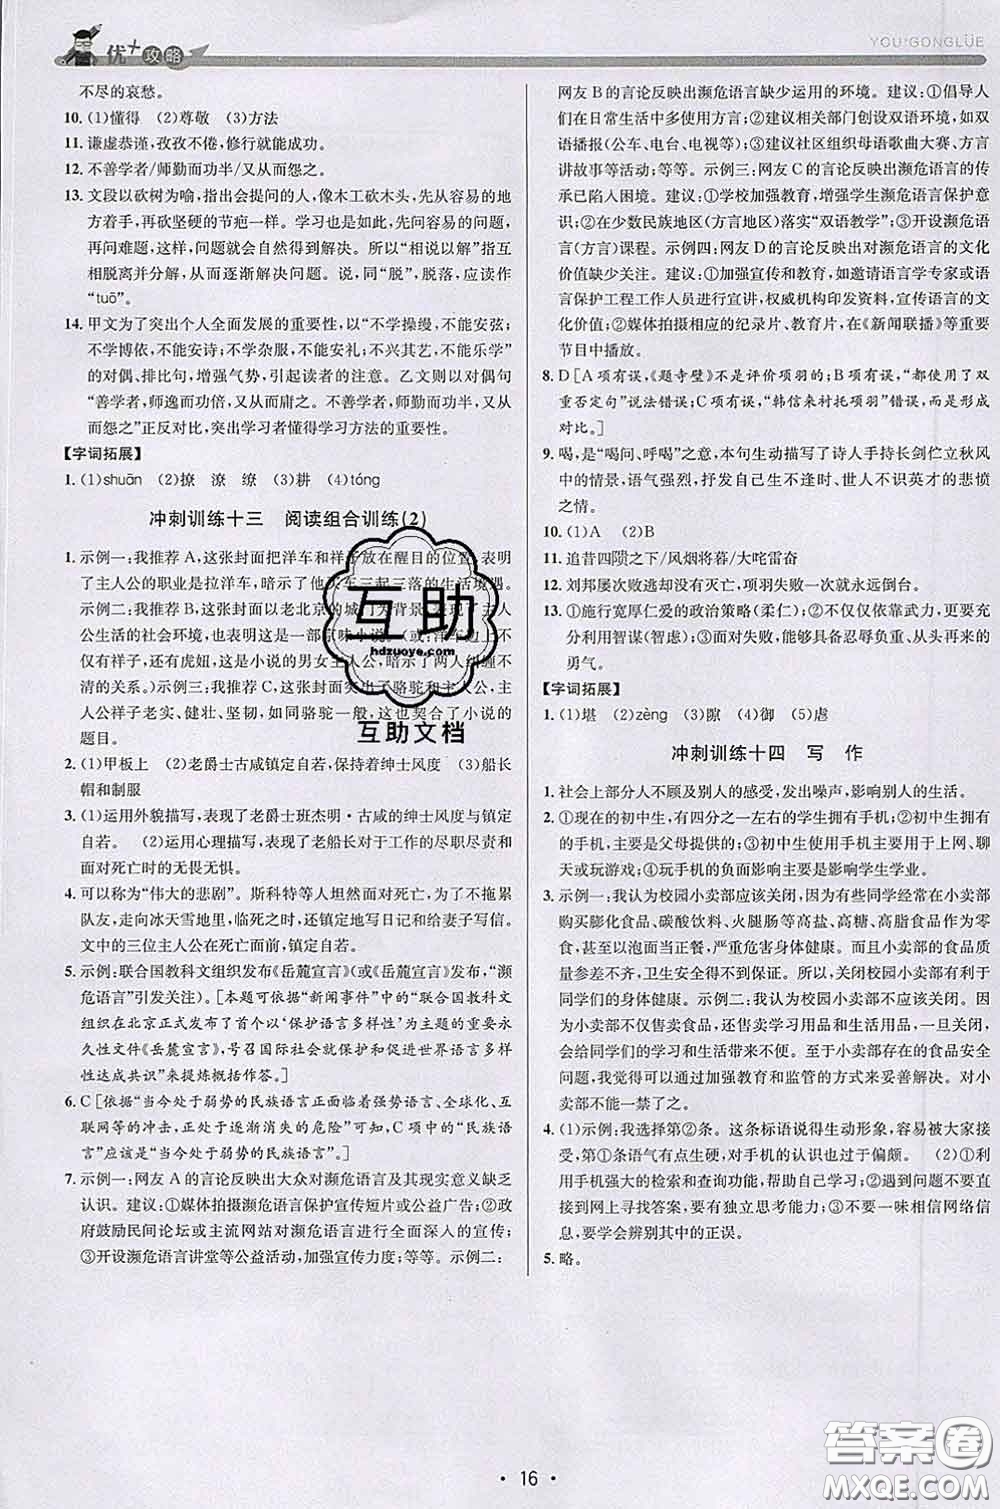 优+攻略
YOU+GONGLÜE
不尽的哀愁。
10. (1)懂得 (2)尊敬 (3)方法
11. 谦虚恭谨,孜孜不倦,修行就能成功。
12. 不善学者/师勤而功半/又从而怨之。
13. 文段以砍树为喻,指出会提问的人,像木工砍木头,先砍容易的地
方着手,再砍坚硬的节疤一样。学习也是如此,先问容易的问题,
再问难题,这样,问题就会自然得到解决。所以“相说以解”指互
相脱离并分析,从而逐渐解决问题。说,同“脱”,脱落,应读作
“tuō”。
14. 甲文为了突出个人全面发展的重要性,以“不学操缦,不能安弦;
不学博依,不能安诗;不学杂服,不能安礼;不兴其艺,不能乐学”
的对偶、排比句,增强气势,引起读者的注意。乙文则以对偶句
“善学者,师逸而功倍,又从而庸之。不善学者,师勤而功半,又从
而怨之”正反对比,突出学习者懂得学习方法的重要性。
【字词拓展】
1. (1)shuān (2)撩 潦 缭 (3)耕 (4)tóng
冲刺训练十三 阅读组合训练(2)
1. 示例一:我推荐A,这张封面把洋车和祥子放在醒目的位置,表明
了主人公的职业是拉洋车,暗示了他人车三起三落的生活境遇。
示例二:我推荐B,这张封面以老北京的城门为背景,表现了主人
公生活的社会环境,也表明这是一部京味小说。(或:洋车上坐的
不仅有祥子,还有虎妞,这是小说的男女主人公,暗示了两人纠缠不
清的关系。)示例三:我推荐C,这张封面突出了骆驼和主人公,主
人公祥子老实、健壮、坚韧,如同骆驼一般,这也契合了小说的
题目。
2. (1)甲板上 (2)老爵士古咸镇定自若,保持着绅士风度 (3)船长
帽和制服
3. (1)运用外貌描写,表现了老爵士班杰明·古咸的绅士风度与镇定
自若。 (2)运用心理描写,表现了老船长对于工作的尽职尽责和
面对死亡时的无畏无惧。
4. 可以称为“伟大的悲剧”。斯科特等人坦然面对死亡,为了不拖累
队友,走向冰天雪地里,临死之时,还镇定地写日记和给妻子写信。
文中的三位主人公在死亡面前,镇定自若。
5. 示例:联合国教科文组织发布《岳麓宣言》(或《岳麓宣言》发布,“濒
危语言”引发关注)。[本题可依据“新闻事件”中的“联合国教科文
组织在北京正式发布了首个以‘保护语言多样性’为主题的重要
永久性文件《岳麓宣言》,号召国际社会就保护和促进世界语言多
样性达成共识”来提炼概括作答。]
6. C[依据“当今处于弱势的民族语言正面临着强势语言、全球化、互
联网等的冲击,正处于逐渐消失的危险”可知,C项中的“民族语
言”应该是“当今处于弱势的民族语言”。]
7. 示例一:网友A的言论反映出大众对濒危语言及其现实意义缺乏
认识。建议:①媒体拍摄濒危语言保护宣传短片或公益广告;②政
府鼓励民间论坛或主流网站对濒危语言进行全面深入的宣传;
③开设濒危语言讲堂等公益活动,加强宣传力度;等等。示例二:
网友B的言论反映出濒危语言缺少运用的环境。建议:①倡导人
们在日常生活中多使用方言;②建议相关部门创设双语环境,如双
语播报(公车、电台、电视等);③建议社区组织母语歌曲大赛、方言
讲故事等活动;等等。示例三:网友C的言论反映出濒危语言的传
承已陷入困境。建议:①学校加强教育,增强学生濒危语言保护意
识;②在少数民族地区(方言地区)落实“双语教学”;③开设濒危语言
(方言)课程。示例四:网友D的言论反映出对濒危语言的文化
价值缺少关注。建议:①加强宣传和教育,如邀请语言学专家或语
言保护工程工作人员进行宣讲,权威机构印发资料,宣传语言的文
化价值;②媒体拍摄相应的纪录片、教育片,在《新闻联播》等重要
节目中播放。
8. D[A项有误,《题寺壁》不是评价项羽的;B项有误,“使用了双
重否定句”说法错误;C项有误,“韩信来衬托项羽”错误,而是形成
对比。]
9. 喝,是“喝问、呼喝”之意,本句生动描写了诗人手持长剑伫立秋风
中的情景,语气强烈,充分表达了自己生不逢时、世人不识英才的悲愤
之情。
10. (1)A (2)B
11. 追昔四𬯎之下/风烟将暮/大咤雷奋
12. 刘邦屡次败逃却没有灭亡,项羽失败一次就永远倒台。
13. ①施行宽厚仁爱的政治策略(柔仁)。②不仅仅依靠武力,更要充
分利用智谋(智虑);③面对失败,能够具备忍辱负重、从头再来的
勇气。
【字词拓展】
1. (1)堪 (2)zèng (3)隙 (4)御 (5)虐
冲刺训练十四 写 作
1. 社会上部分人不顾及别人的感受,发出噪声,影响别人的生活。
2. ①现在的初中生,有四分之一左右的学生拥有手机;②初中生拥有
的手机,主要是父母提供的;③初中生使用手机主要用于上网、聊
天或玩游戏;④玩手机的负面影响主要是影响学生学业。
3. 示例一:我认为校园小卖部应该关闭。因为有些同学经常在小卖部
购买膨化食品、碳酸饮料、火腿肠等高盐、高糖、高脂食品食用,
甚至以泡面当正餐,严重危害身体健康。而且小卖部的食品质
量参差不齐,卫生安全得不到保障。所以,关闭校园小卖部有利于
同学们的身体健康。示例二:我认为校园小卖部不应该关闭。小
卖部不仅售卖食品,还售卖学习用品和生活用品,一旦关闭,
会给同学们的学习和生活带来不便。至于小卖部存在的食品安全
问题,我觉得可以通过加强教育和监管的方式来妥善解决。对小
卖部不能一禁了之。
4. (1)示例:我选择第②条。这条标语说得生动形象,容易被大家接
受,第①条语气有点生硬,对手机的认识也过于偏颇。 (2)①利
用手机强大的检索和查询功能,帮助自己学习;②遇到问题不要
直接到网上寻找答案,要有独立思考意识。③不要一味相信网络信
息,要学会辨别其中的正误。
5. 略。
互助
hdzuoye.com
互助文档
· 16 ·
答案圈
MXQE.COM